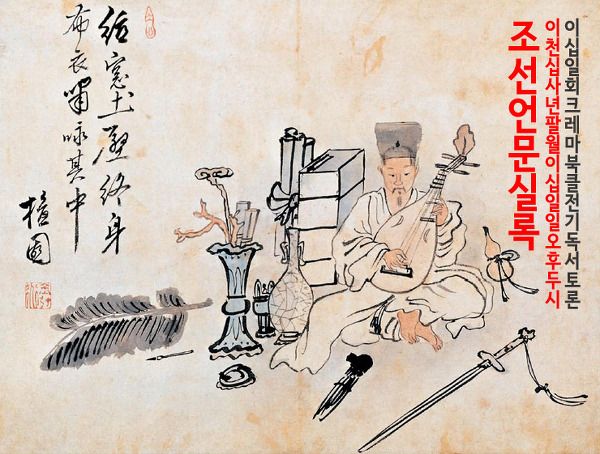 이십일회크레마북클전기독서토론
이천십사년팔월이십일일오후두시
조선언문실록
紙窓土壁終身
布衣嘯咏其中
檀園